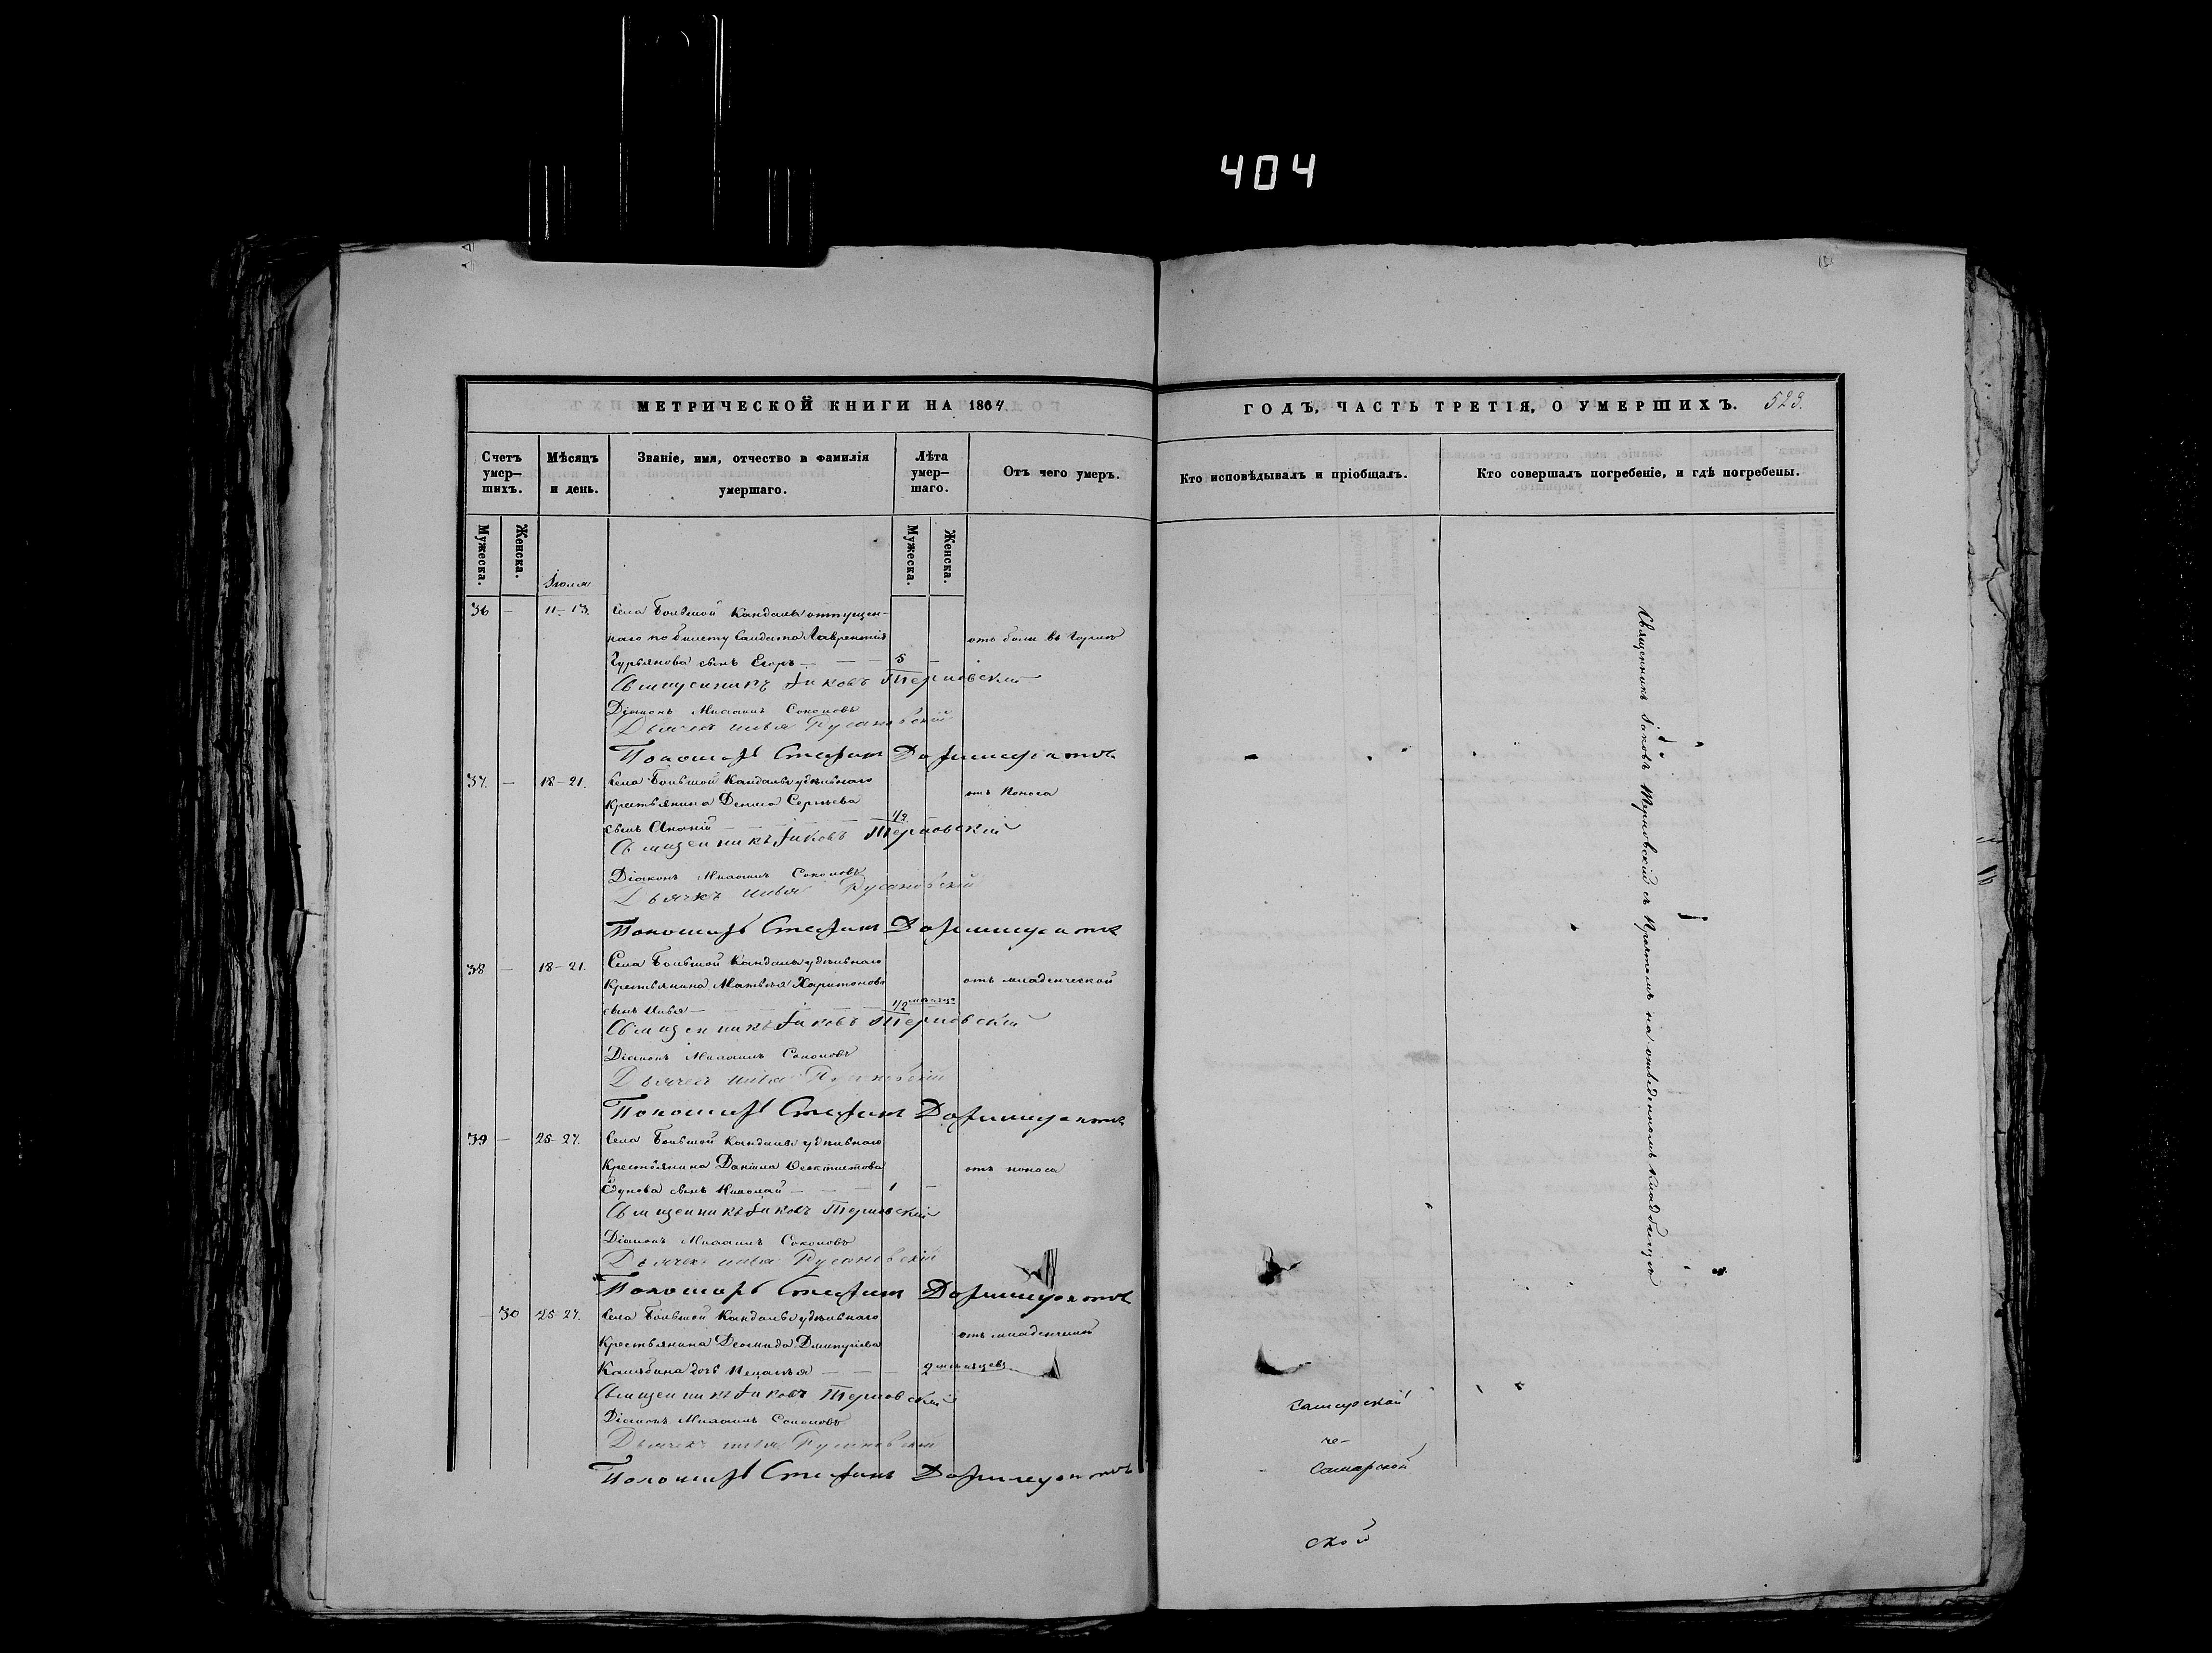 404
МЕТРИЧЕСКОЙ КНИГИ НА 1864.
ГОДЪ, ЧАСТЬ ТРЕТІЯ, О УМЕРШИХЪ. 523.
Счетъ умер–шихъ.
Мѣсяцъ и день.
Званіе, имя, отчество и фамилія умершаго.
Лѣта умер–шаго.
Отъ чего умеръ.
Кто исповѣдывалъ и пріобщалъ.
Кто совершалъ погребеніе, и гдѣ погребены.
Мужеска.
Женска.
Мужеска.
Женска.
Іюля
36 — 11–13. Села Большой Кандалы отпущен-
наго по билету Солдата Лаврентія отъ боли въ горлѣ
Гурьянова сынъ Егоръ — — — 5 —
Священникъ Іаковъ Терновскій
Діаконъ Михаилъ Соколовъ
Дьячекъ Илья Русановскій
Пономарь Стефанъ
37. — 18–21. Села Большой Кандалы удѣльнаго
Крестьянина Дениса Сергѣева отъ поноса
сынъ Ананій — — — 1/2 —
Священникъ Іаковъ Терновскій
Діаконъ Михаилъ Соколовъ
Дьячекъ Илья Русановскій
Пономарь Стефанъ
38 — 18–21. Села Большой Кандалы удѣльнаго
Крестьянина Матвѣя Харитонова отъ младенческой
сынъ Илья — — — 1/2 мѣсяца
Священникъ Іаковъ Терновскій
Діаконъ Михаилъ Соколовъ
Дьячекъ Илья Русановскій
Пономарь Стефанъ
39 — 25–27. Села Большой Кандалы удѣльнаго
Крестьянина Даніила Ѳеоктистова отъ поноса
сынъ Николай — — — 1 —
Священникъ Іаковъ Терновскій
Діаконъ Михаилъ Соколовъ
Дьячекъ Илья Русановскій
Пономарь Стефанъ
— 30 25–27. Села Большой Кандалы удѣльнаго
Крестьянина Діомида Дмитріева отъ младенческой
дочь — — — 2 мѣсяцевъ
Священникъ Іаковъ Терновскій
Діаконъ Михаилъ Соколовъ
Дьячекъ Илья Русановскій
Пономарь Стефанъ
Священникъ Іаковъ Терновскій съ Причтомъ на отведенномъ кладбищѣ
Самарской
че–
Самарской
ской